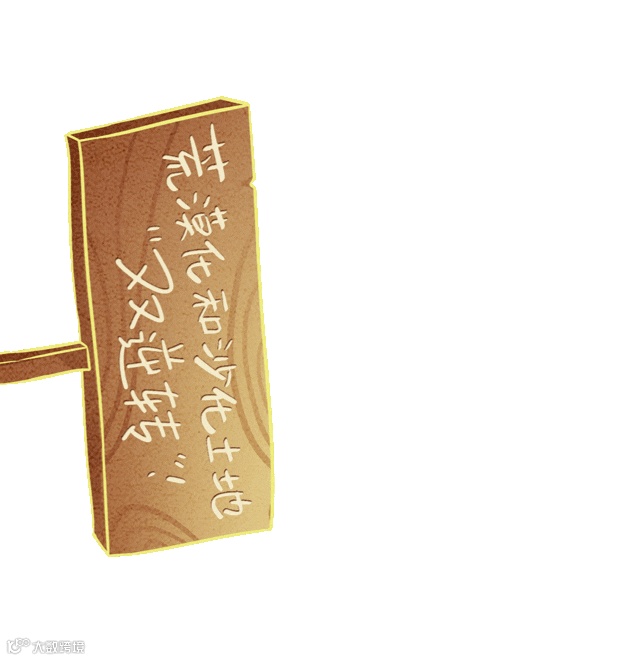 荒漠化和沙化土地
“双逆转”
大数跨境